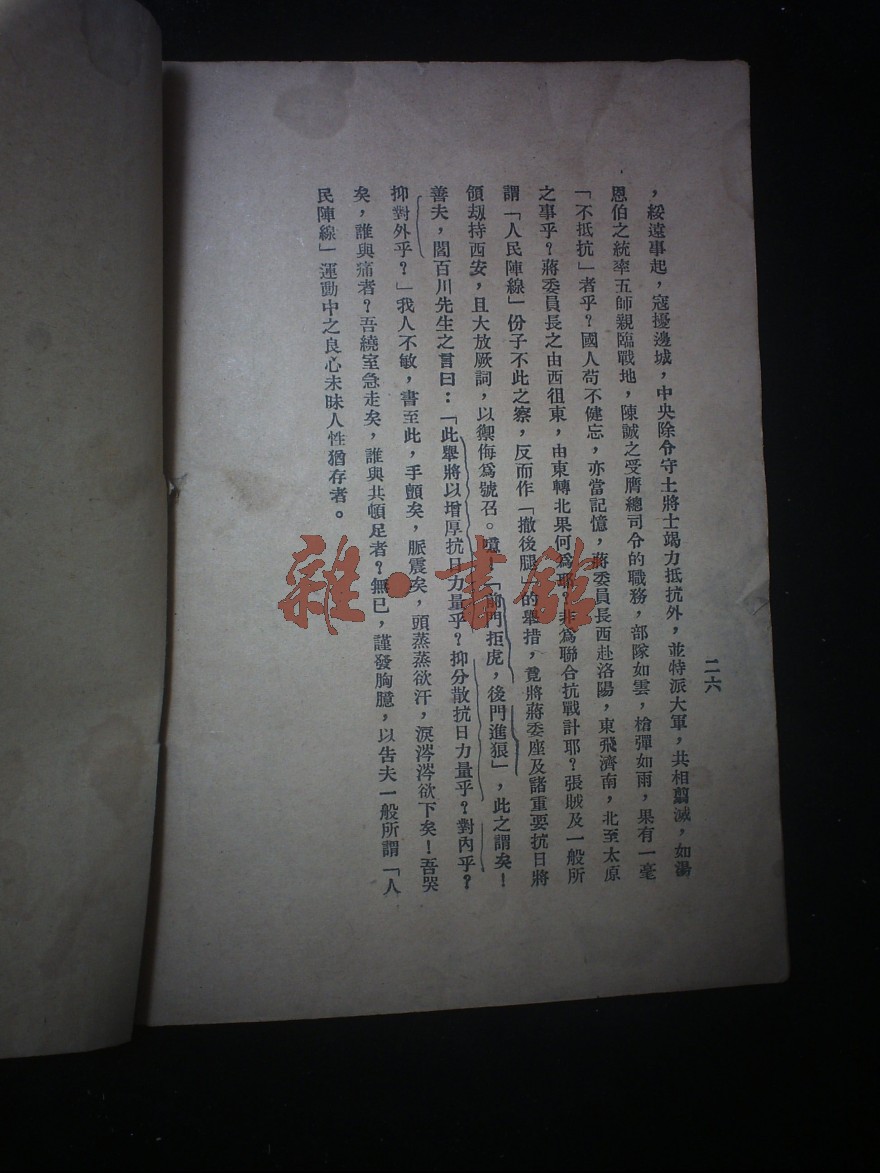 二六
，綏遠事起，寇擾邊城，中央除令守土將士竭力抵抗外，並特派大軍，共相翦滅，如湯
恩伯之統率五師親臨戰地，陳誠之受膺總司令的職務，部隊如雲，槍彈如雨，果有一毫
「不抵抗」者乎？國人苟不健忘，亦當記憶，蔣委員長西赴洛陽，東飛濟南，北至太原
之事乎？蔣委員長之由西徂東，由東轉北果何爲耶？非爲聯合抗戰計耶？張賊及一般所
謂「人民陣線」份子不此之察，反而作「撤後腿」的舉措，竟將蔣委座及諸重要抗日將
領刼持西安，且大放厥詞，以禦侮爲號召。噫！「前門拒虎，後門進狼」，此之謂矣！
善夫，閻百川先生之言曰：「此舉將以增厚抗日力量乎？抑分散抗日力量乎？對內乎？
抑對外乎？」我人不敏，書至此，手顫矣，脈震矣，頭蒸蒸欲汗，淚涔涔欲下矣！吾哭
矣，誰與痛者？吾繞室急走矣，誰與共頓足者？無已，謹發胸臆，以告夫一般所謂「人
民陣線」運動中之良心未昧人性猶存者。
雜·書館